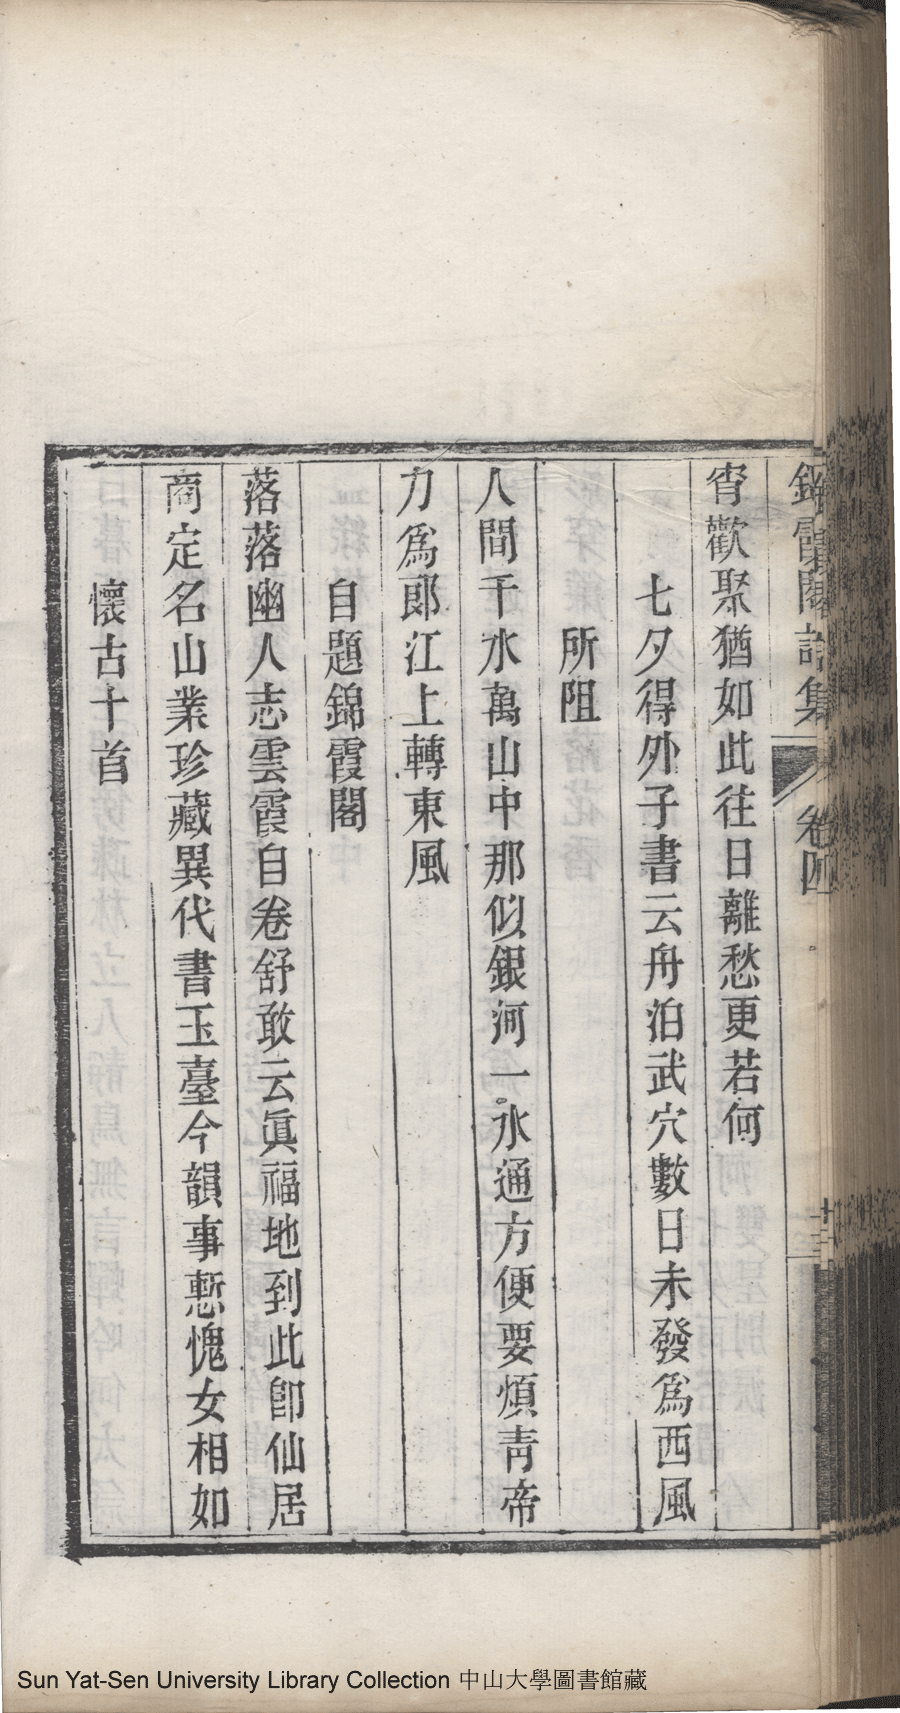 錦霞閣詩集 卷四 十二
宵歡聚猶如此往日離愁更若何
七夕得外子書云舟泊武穴數日未發爲西風
所阻
人間千水萬山中那似銀河一水通方便要煩靑帝
力爲郎江上轉東風
自題錦霞閣
落落幽人志雲霞自卷舒敢云眞福地到此卽仙居
商定名山業珍藏異代書玉臺今韻事慙愧女相如
懷古十首
Sun Yat-Sen University Library Collection 中山大學圖書館藏